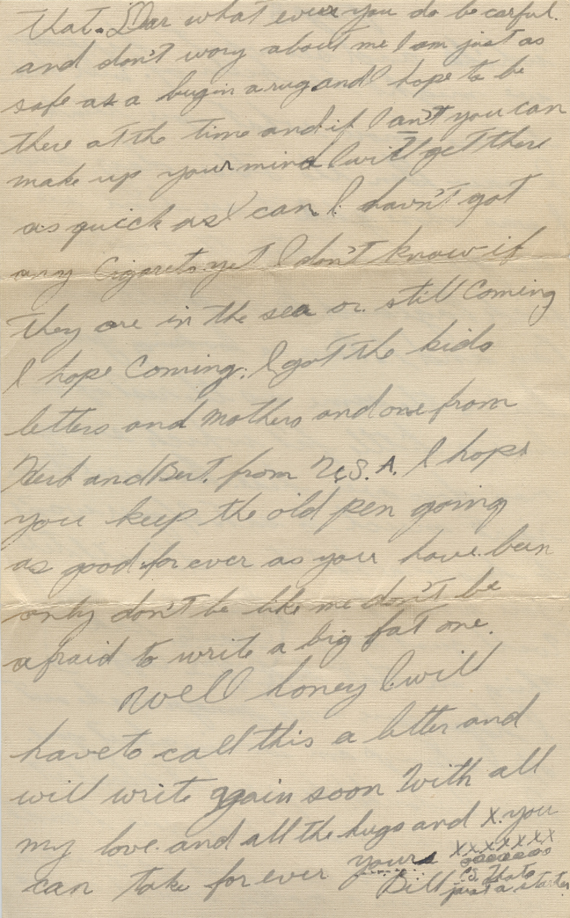 that. Dar what ever you do be carful.
and don't wory about me I am just as
safe as a bug in a rug and I hope to be
there at the time and if I can't you can
make up your mind I will get there
as quick as I can. I havn't got
any Cigarets yet I don't know if
they are in the sea or still Coming
I hope Coming. I got the kids
letters and Mothers and one from
Herb and Bert. from U.S.A. I hope
you keep the old pen going
as good for ever as your have been
only don't be like me don't be
afraid to write a big fat one.
Well honey I will
have to call this a letter and
will write again soon With all
my love and all the hugs and X you
can take for ever yours XXXXXXX
Bill ooooooo
thats
just a starter